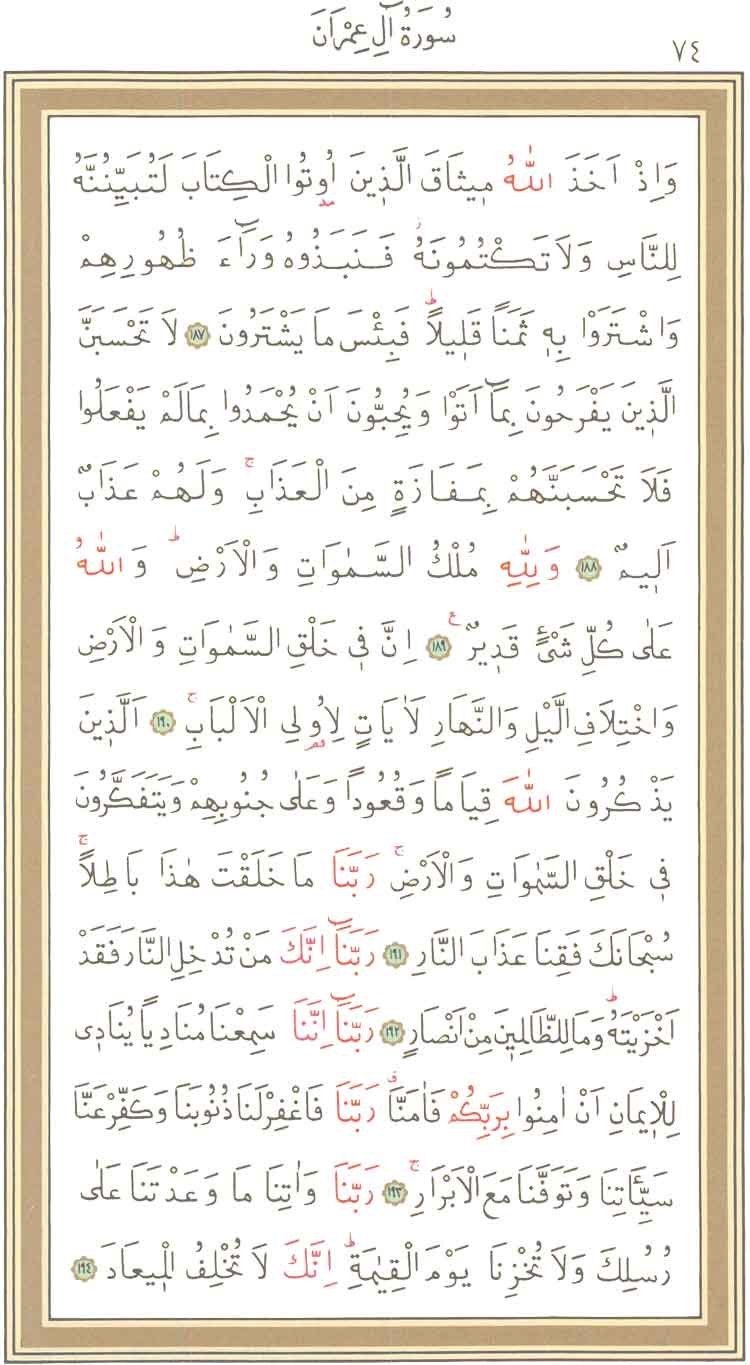 ٧٤
سُورَةُ اٰلِ عِمْرَانَ
وَاِذْ اَخَذَ اللّٰهُ مٖيثَاقَ الَّذٖينَ اُو۫تُوا الْكِتَابَ لَتُبَيِّنُنَّهُ
لِلنَّاسِ وَلَا تَكْتُمُونَهُۘ فَنَبَذُوهُ وَرَٓاءَ ظُهُورِهِمْ
وَاشْتَرَوْا بِهٖ ثَمَناً قَلٖيلاًؕ فَبِئْسَ مَا يَشْتَرُونَ ﴿١٨٧﴾ لَا تَحْسَبَنَّ
الَّذٖينَ يَفْرَحُونَ بِمَٓا اَتَوْا وَيُحِبُّونَ اَنْ يُحْمَدُوا بِمَا لَمْ يَفْعَلُوا
فَلَا تَحْسَبَنَّهُمْ بِمَفَازَةٍ مِنَ الْعَذَابِۚ وَلَهُمْ عَذَابٌ
اَلٖيمٌ ﴿١٨٨﴾ وَلِلّٰهِ مُلْكُ السَّمٰوَاتِ وَالْاَرْضِؕ وَاللّٰهُ
عَلٰى كُلِّ شَيْءٍ قَدٖيرٌࣖ ﴿١٨٩﴾ اِنَّ فٖي خَلْقِ السَّمٰوَاتِ وَالْاَرْضِ
وَاخْتِلَافِ الَّيْلِ وَالنَّهَارِ لَاٰيَاتٍ لِاُو۬لِي الْاَلْبَابِۚ ﴿١٩٠﴾ اَلَّذٖينَ
يَذْكُرُونَ اللّٰهَ قِيَاماً وَقُعُوداً وَعَلٰى جُنُوبِهِمْ وَيَتَفَكَّرُونَ
فٖي خَلْقِ السَّمٰوَاتِ وَالْاَرْضِۚ رَبَّنَا مَا خَلَقْتَ هٰذَا بَاطِلاًۚ
سُبْحَانَكَ فَقِنَا عَذَابَ النَّارِ ﴿١٩١﴾ رَبَّنَٓا اِنَّكَ مَنْ تُدْخِلِ النَّارَ فَقَدْ
اَخْزَيْتَهُؕ وَمَا لِلظَّالِمٖينَ مِنْ اَنْصَارٍ ﴿١٩٢﴾ رَبَّنَٓا اِنَّنَا سَمِعْنَا مُنَادِياً يُنَادٖي
لِلْاٖيمَانِ اَنْ اٰمِنُوا بِرَبِّكُمْ فَاٰمَنَّاۗ رَبَّنَا فَاغْفِرْ لَنَا ذُنُوبَنَا وَكَفِّرْ عَنَّا
سَيِّـَٔاتِنَا وَتَوَفَّنَا مَعَ الْاَبْرَارِۚ ﴿١٩٣﴾ رَبَّنَا وَاٰتِنَا مَا وَعَدْتَنَا عَلٰى
رُسُلِكَ وَلَا تُخْزِنَا يَوْمَ الْقِيٰمَةِؕ اِنَّكَ لَا تُخْلِفُ الْمٖيعَادَ ﴿١٩٤﴾